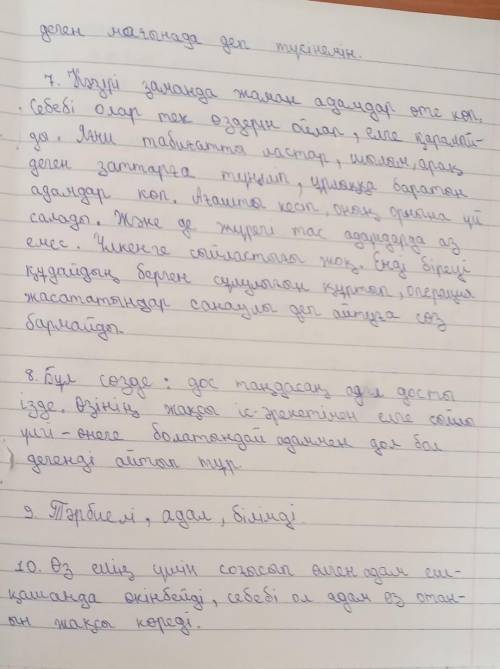 деген мағынада деп түсінемін.
7. Қазіргі заманда жаман адамдар өте көп.
Себебі олар тек өздерін ойлар, елге қаралай-
ды. Яғни табиғатты ластар, шылым, арақ
деген заттарға тұнып, ұрлыққа баратын
адамдар көп. Ағашты кесіп, оның орнына үй
салады. Және де жүрегі тас адамдарда аз
емес. Үлкенге сыйластығы жоқ. Енді біреуі
құдайдың берген сұлулығын құртып, операция
жасататындар санаулы деп айтуға сөз
бармайды.
8. Бұл сөзде: дос таңдасаң адал досты
ізде. Өзінің жақсы іс-әрекетінен елге сыйлы
үлгі-өнеге болатындай адаммен дос бол
дегенді айтып тұр
9. Тәрбиелі, адал, білімді
10. Өз елің үшін соғысып өлген адам еш-
қашанда өкінбейді, себебі ол адам өз отан-
ын жақсы көреді.